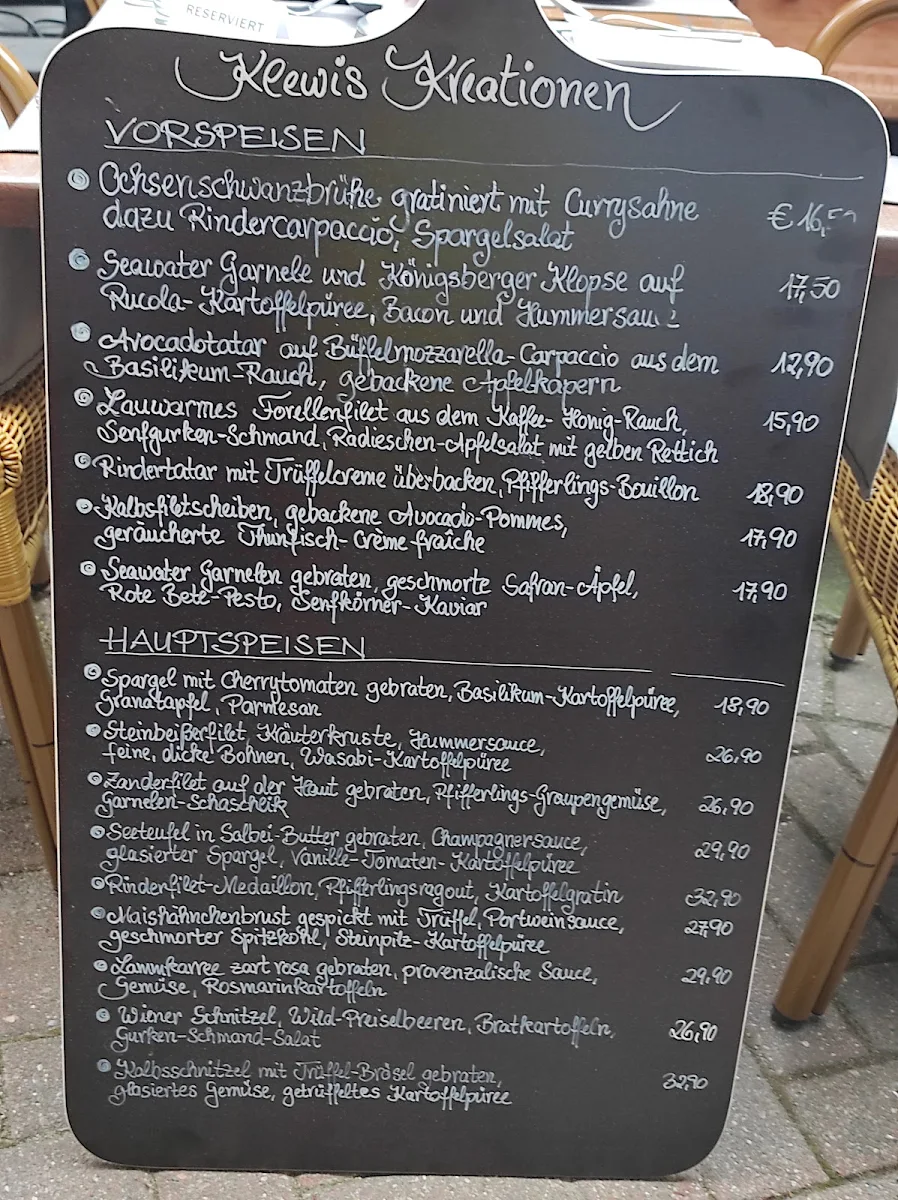 RESERVIERT
Klewis Kreationen
VORSPEISEN
Ochsenschwanzbrühe gratiniert mit Currysahne
dazu Rindercarpaccio, Spargelsalat € 16,50
Seawater Garnele und Königsberger Klopse auf 17,50
Rucola-Kartoffelpüree, Bacon und Hummersau
Avocadotatar auf Büffelmozzarella-Carpaccio aus dem 12,90
Basilikum-Rauch, gebackene Apfelkapern
Lauwarmes Forellenfilet aus dem Kaffee-Honig-Rauch, 15,90
Senfgurken-Schmand, Radieschen-Apfelsalat mit gelben Rettich
Rindertatar mit Trüffelcreme überbacken, Pfifferlings-Bouillon 18,90
Kalbsfiletscheiben, gebackene Avocado-Pommes, 17,90
geräucherte Thunfisch-Crème fraîche
Seawater Garnelen gebraten, geschmorte Safran-Äpfel, 17,90
Rote Bete-Pesto, Senfkörner-Kaviar
HAUPTSPEISEN
Spargel mit Cherrytomaten gebraten, Basilikum-Kartoffelpüree, 18,90
Granatapfel, Parmesan
Steinbeißerfilet, Kräuterkruste, Hummersauce, 26,90
feine, dicke Bohnen, Wasabi-Kartoffelpüree
Zanderfilet auf der Haut gebraten, Pfifferlings-Graupengemüse, 26,90
Garnelen-Schaschlik
Seeteufel in Salbei-Butter gebraten, Champagnersauce, 29,90
glasierter Spargel, Vanille-Tomaten-Kartoffelpüree
Rinderfilet-Medaillon, Pfifferlingsragout, Kartoffelgratin 32,90
Maishähnchenbrust gespickt mit Trüffel, Portweinsauce, 27,90
geschmorter Spitzkohl, Steinpilz-Kartoffelpüree
Lammkarree zart rosa gebraten, provenzalische Sauce, 29,90
Gemüse, Rosmarinkartoffeln
Wiener Schnitzel, Wild-Preiselbeeren, Bratkartoffeln, 26,90
Gurken-Schmand-Salat
Kalbsschnitzel mit Trüffel-Brösel gebraten, 32,90
glasiertes Gemüse, getrüffeltes Kartoffelpüree